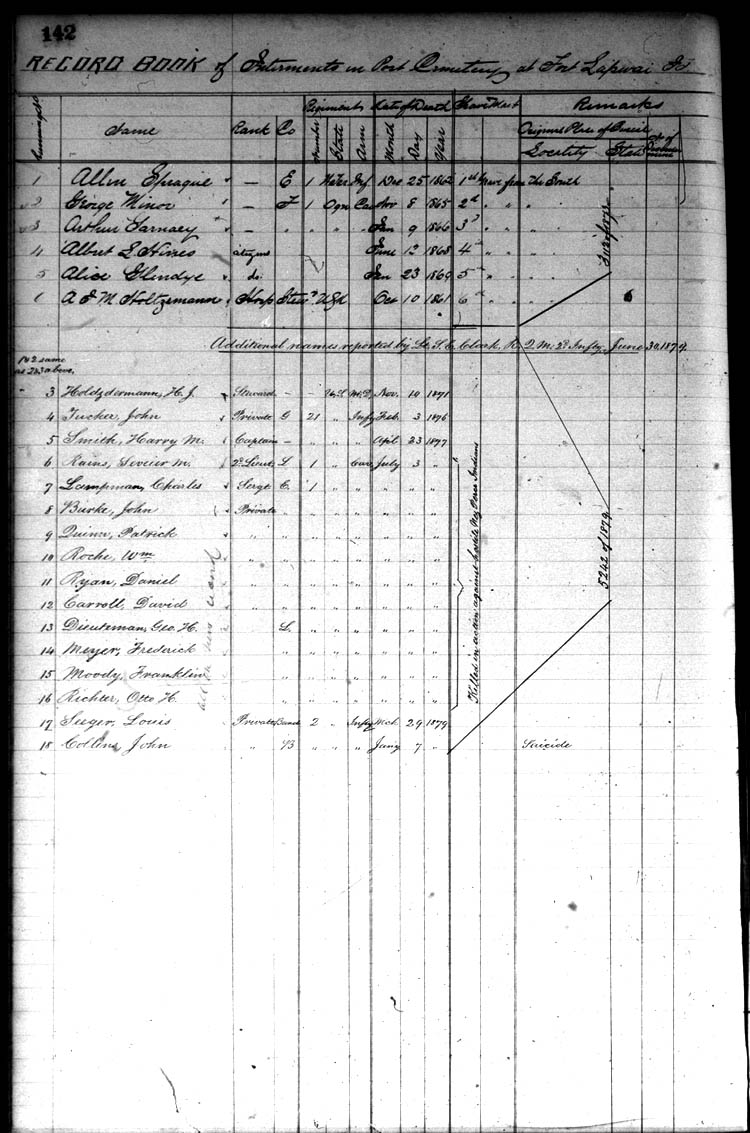 142
RECORD BOOK of Interments in Post Cemetery at Fort Lapwai I.T.
Regiment Date of Death Remarks
Name Rank Co Number State Arm Month Day Year Original Place of Burial
Locality
1 Allen Sprague " — E 1 Inf Dec 25 1862 1st Grave from the South
2 George Minor " — F 1 Ogn Cav Nov 8 1865 2d " " "
3 Arthur " — " " " " Jan 9 1866 3d " " "
4 Albert L Hines citizen June 12 1868 4th " " "
5 Alice " do. Jan 23 1869 5th " " "
6 A F M Holtzemann " Hosp Stew'd USA Oct 10 1861 6th " " " 6
Additional names reported by Lt. S. E. Clark R. Q. M. 2d Infty. June 30, 1879.
1 & 2 same
as 2 & 3 above.
3 Holdzdermann, H. J. " Steward — — U.S. M.D. Nov. 10 1871
4 Tucker, John " Private G 21 " Infy Feb. 3 1876
5 Smith, Harry M. " Captain — " " " April 23 1877
6 Rains, Sevier M. " 2d Lieut. L 1 " Cav. July 3 "
7 Lampman, Charles " Sergt. E. 1 " " " " "
8 Burke, John " Private " " " " " " "
9 Quinn, Patrick " " " " " " " " "
10 Roche, Wm " " " " " " " " "
11 Ryan, Daniel " " " " " " " " "
12 Carroll, David " " " " " " " " "
13 Dieuteman, Geo. H. " " L. " " " " " "
14 Meyer, Frederick " " " " " " " "
15 Moody, Franklin " " " " " " " "
16 Richter, Otto H. " " " " " " " "
Killed in action against hostile Nez Perce Indians
5242 of 1879
17 Seeger, Louis Private Band 2 " Infty Mch. 29 1879
18 Collins, John " B " " " Jany 7 " Suicide